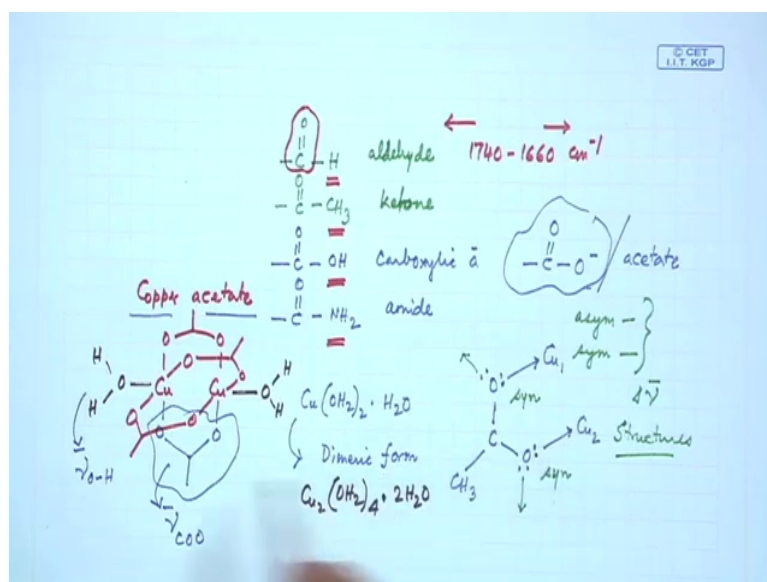 © CET
I.I.T. KGP
O
– C – H aldehyde 1740 – 1660 cm⁻¹
O
– C – CH₃ ketone
O
– C – OH Carboxylic ā
O
– C – O⁻ / acetate
O
– C – NH₂ amide
Copper acetate
O O
O O
H O Cu Cu O H
H H
O O
O O
ν̄ O–H
ν̄ COO
Cu(OH₂)₂ · H₂O
Dimeric form
Cu₂(OH₂)₄ · 2H₂O
asym –
sym –
Δν̄
Structures
O: Cu₁
syn
C
O: Cu₂
syn
CH₃